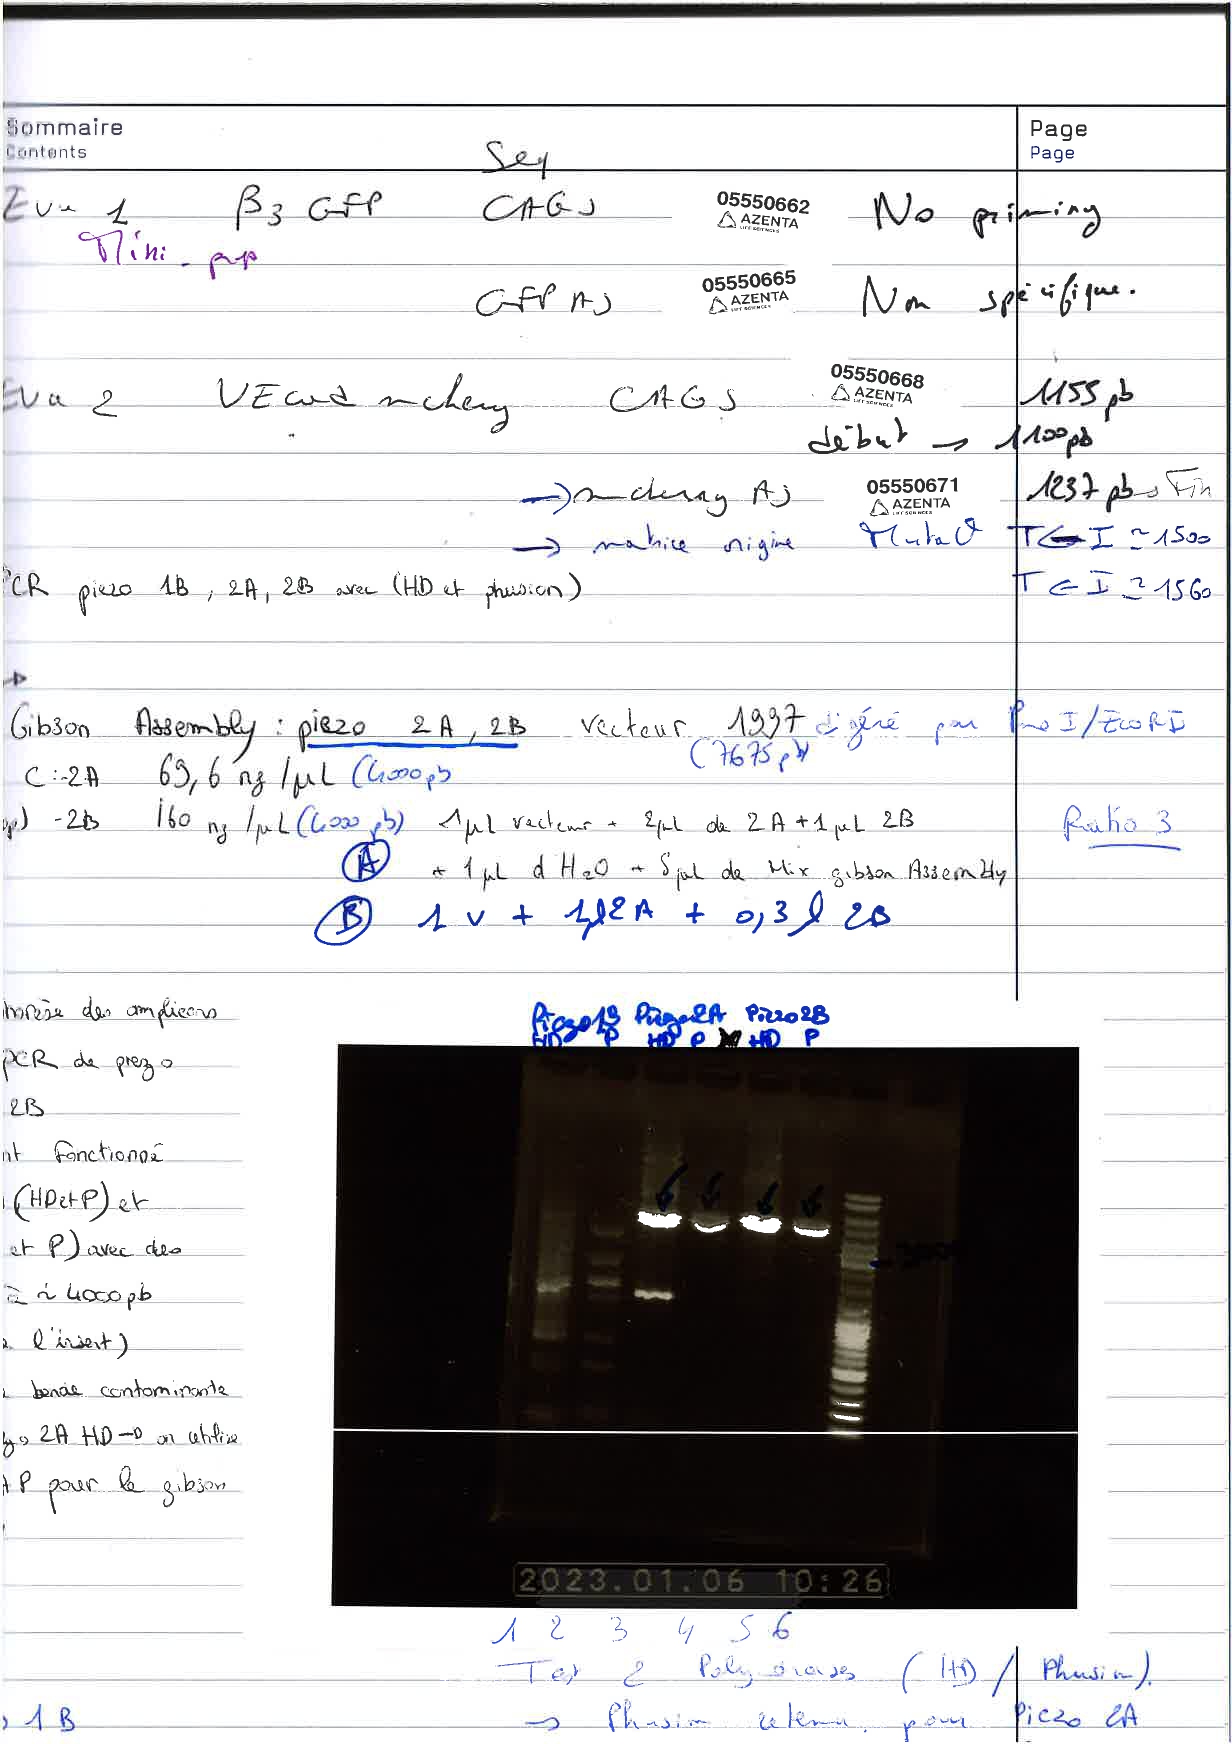 Sommaire
Contents
Page
Page
Seq
Eva 1 β3 GFP CAGS 05550662 AZENTA LIFE SCIENCES No priming
Mini-prep
GFP AS 05550665 AZENTA LIFE SCIENCES Non spécifique.
Eva 2 VEcad mcherry CAGS 05550668 AZENTA LIFE SCIENCES 1155 pb
début → 1100 pb
→ mcherry AS 05550671 AZENTA LIFE SCIENCES 1237 pb → Fin
→ matrice origine Mutat° T ← I ≃ 1500
PCR piezo 1B, 2A, 2B avec (HD et phusion) T ← I ≃ 1560
Gibson Assembly : piezo 2A, 2B vecteur 1997 digéré par I/EcoRI
(7675 pb)
C : -2A 69,6 ng/µL (4000 pb
-2B 160 ng/µL (4000 pb) 1µL vecteur + 2µL de 2A + 1µL 2B Ratio 3
A + 1µL d H2O + 5µL de Mix gibson Assembly
B 1 v + 1µl 2A + 0,3 l 2B
des amplicons
PCR de piezo
2B
nt fonctionné
(HD et P) et
et P) avec des
à ~ 4000 pb
l'insert)
bande contaminante
2A HD → on utilise
P pour le gibson
Piezo1B Piezo2A Piezo2B
HD P HD P HD P
2023.01.06 10:26
1 2 3 4 5 6
Test 2 Polymerases (HD / Phusion).
→ Phusion retenu pour Piezo 2A
1B